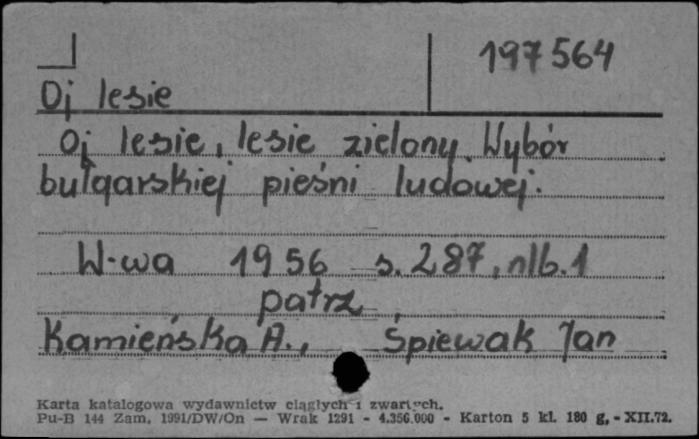 197564
Oj lesie
Oj lesie, lesie zielony. Wybór
bułgarskiej pieśni ludowej.
W-wa 1956 s. 287, nlb. 1
patrz
Kamieńska A., Śpiewak Jan
Karta katalogowa wydawnictw ciągłych i zwartych.
Pu-B 144 Zam. 1991/DW/On — Wrak 1291 - 4.356.000 - Karton 5 kl. 180 g, - XII.72.